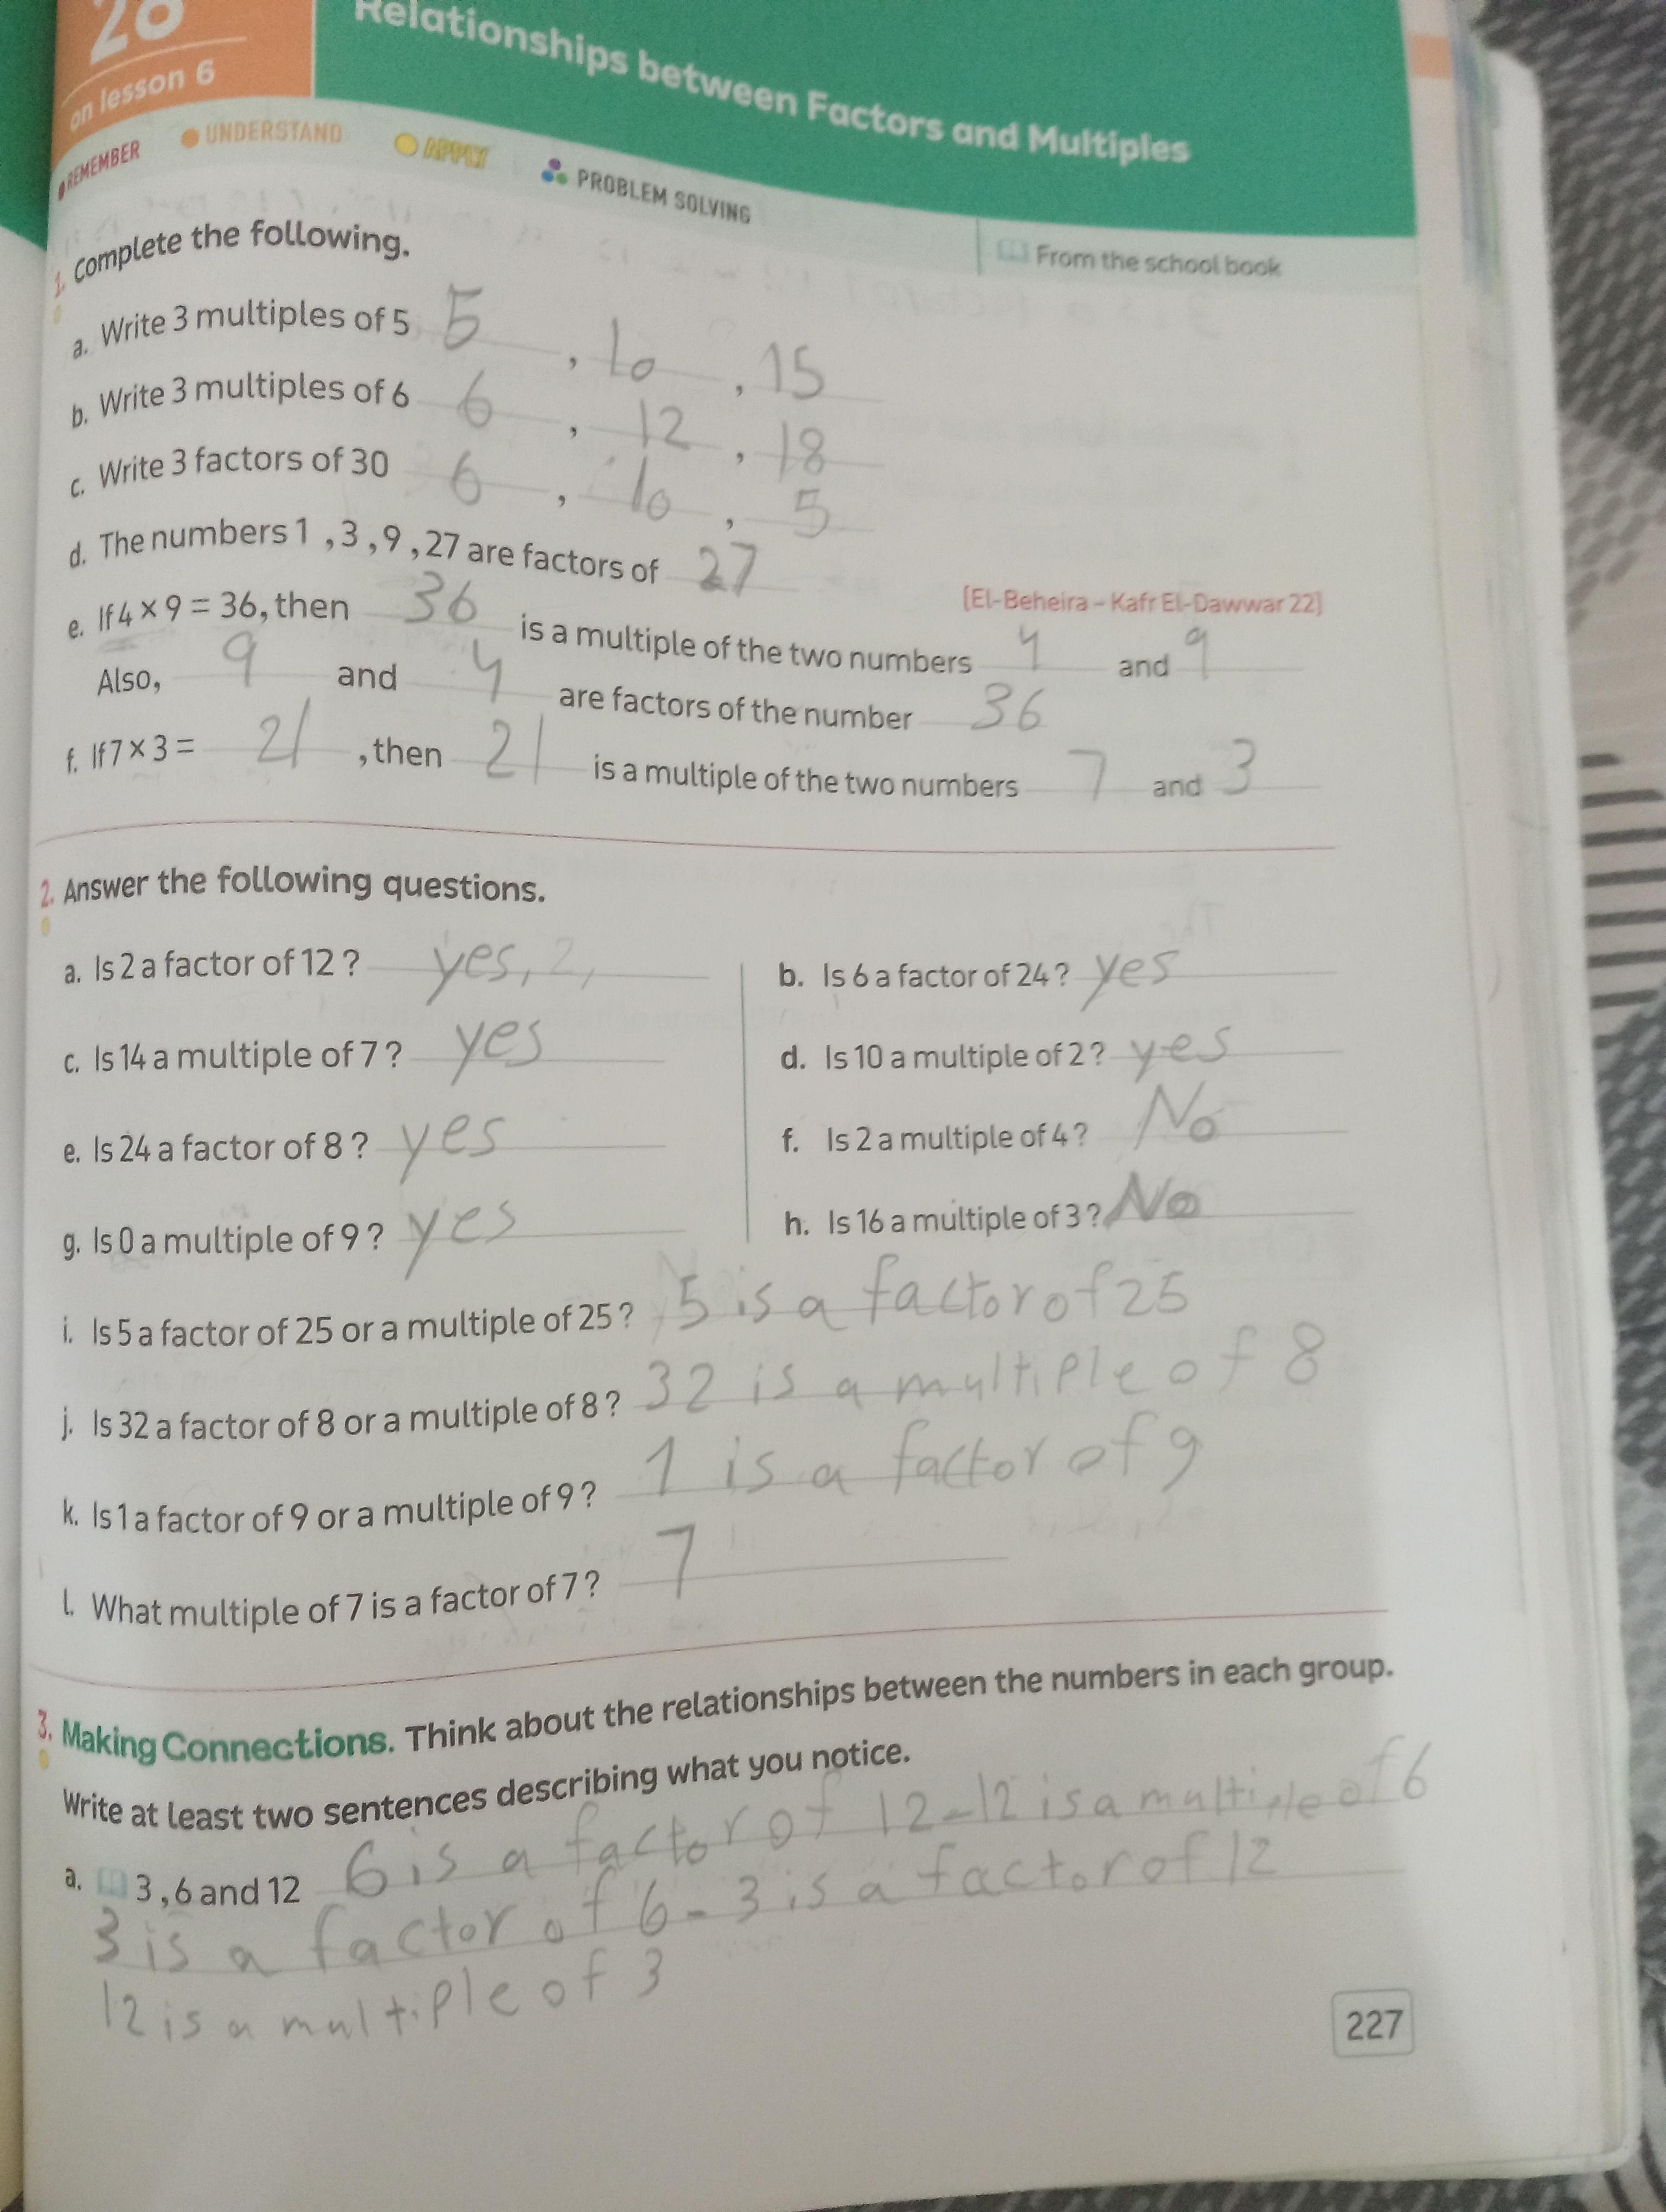 28
on lesson 6
Relationships between Factors and Multiples
REMEMBER UNDERSTAND APPLY PROBLEM SOLVING
From the school book
1. Complete the following.
a. Write 3 multiples of 5 5 , 10 , 15
b. Write 3 multiples of 6 6 , 12 , 18
c. Write 3 factors of 30 6 , 10 , 5
d. The numbers 1 , 3 , 9 , 27 are factors of 27
[El-Beheira – Kafr El-Dawwar 22]
e. If 4 × 9 = 36, then 36 is a multiple of the two numbers 4 and 9
Also, 9 and 4 are factors of the number 36
f. If 7 × 3 = 21 , then 21 is a multiple of the two numbers 7 and 3
2. Answer the following questions.
a. Is 2 a factor of 12 ? yes, 2,
b. Is 6 a factor of 24 ? yes
c. Is 14 a multiple of 7 ? yes
d. Is 10 a multiple of 2 ? yes
e. Is 24 a factor of 8 ? yes
f. Is 2 a multiple of 4 ? No
g. Is 0 a multiple of 9 ? yes
h. Is 16 a multiple of 3 ? No
i. Is 5 a factor of 25 or a multiple of 25 ? 5 is a factor of 25
j. Is 32 a factor of 8 or a multiple of 8 ? 32 is a multiple of 8
k. Is 1 a factor of 9 or a multiple of 9 ? 1 is a factor of 9
l. What multiple of 7 is a factor of 7 ? 7
3. Making Connections. Think about the relationships between the numbers in each group.
Write at least two sentences describing what you notice.
a. 3 , 6 and 12 6 is a factor of 12 - 12 is a multiple of 6
3 is a factor of 6 - 3 is a factor of 12
12 is a multiple of 3
227